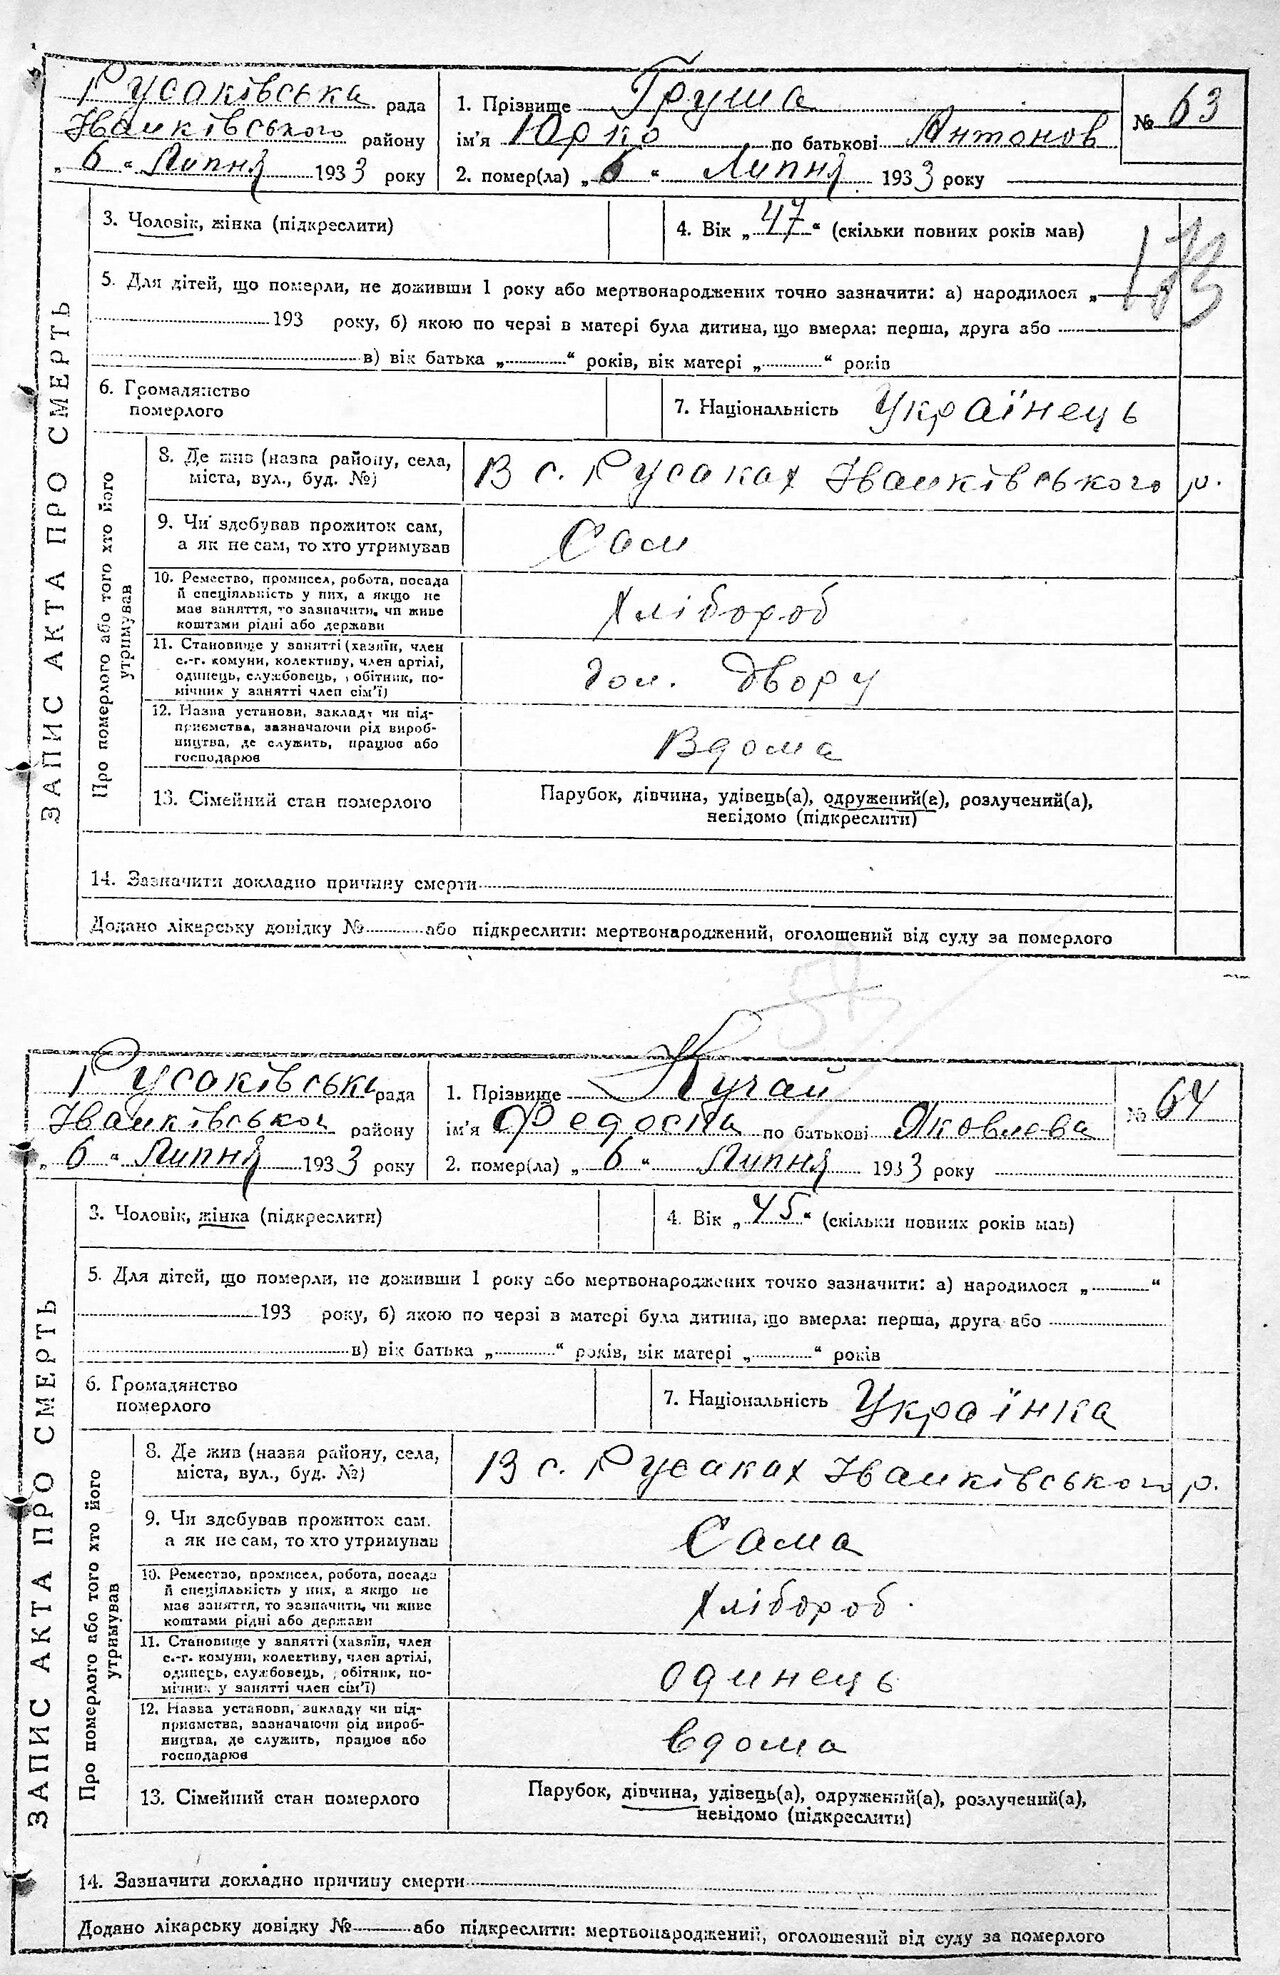 Русаківська рада
Іванківського району
„ 6 “ Липня 1933 року
1. Прізвище Груша
ім'я Юрко по батькові Антонов
2. помер(ла) „ 6 “ Липня 1933 року
№ 63
3. Чоловік, жінка (підкреслити)
4. Вік „ 47 “ (скільки повних років мав)
173
5. Для дітей, що померли, не доживши 1 року або мертвонароджених точно зазначити: а) народилося „ “
193 року, б) якою по черзі в матері була дитина, що вмерла: перша, друга або
в) вік батька „ “ років, вік матері „ “ років
6. Громадянство
померлого
7. Національність Українець
ЗАПИС АКТА ПРО СМЕРТЬ
Про померлого або того хто його
утримував
8. Де жив (назва району, села,
міста, вул., буд. №)
В с. Русаках Іванківського р.
9. Чи здобував прожиток сам,
а як не сам, то хто утримував
Сам
10. Ремество, промисел, робота, посада
й спеціяльність у них, а якщо не
має заняття, то зазначити, чи живе
коштами рідні або держави
Хлібороб
11. Становище у занятті (хазяїн, член
с.-г. комуни, колективу, член артілі,
одинець, службовець, обітник, по-
мічник у занятті член сім'ї)
Гол. двору
12. Назва установи, закладу чи під-
приємства, зазначаючи рід вироб-
ництва, де служить, працює або
господарює
Вдома
13. Сімейний стан померлого
Парубок, дівчина, удівець(а), одружений(а), розлучений(а),
невідомо (підкреслити)
14. Зазначити докладно причину смерти
Додано лікарську довідку № або підкреслити: мертвонароджений, оголошений від суду за померлого
Русаківська рада
Іванківського району
„ 6 “ Липня 1933 року
1. Прізвище Кучай
ім'я Федосія по батькові Яковлева
2. помер(ла) „ 6 “ Липня 1933 року
№ 64
3. Чоловік, жінка (підкреслити)
4. Вік „ 45 “ (скільки повних років мав)
5. Для дітей, що померли, не доживши 1 року або мертвонароджених точно зазначити: а) народилося „ “
193 року, б) якою по черзі в матері була дитина, що вмерла: перша, друга або
в) вік батька „ “ років, вік матері „ “ років
6. Громадянство
померлого
7. Національність Українка
ЗАПИС АКТА ПРО СМЕРТЬ
Про померлого або того хто його
утримував
8. Де жив (назва району, села,
міста, вул., буд. №)
В с. Русаках Іванківського р.
9. Чи здобував прожиток сам,
а як не сам, то хто утримував
Сама
10. Ремество, промисел, робота, посада
й спеціяльність у них, а якщо не
має заняття, то зазначити, чи живе
коштами рідні або держави
Хлібороб
11. Становище у занятті (хазяїн, член
с.-г. комуни, колективу, член артілі,
одинець, службовець, обітник, по-
мічник у занятті член сім'ї)
Одинець
12. Назва установи, закладу чи під-
приємства, зазначаючи рід вироб-
ництва, де служить, працює або
господарює
вдома
13. Сімейний стан померлого
Парубок, дівчина, удівець(а), одружений(а), розлучений(а),
невідомо (підкреслити)
14. Зазначити докладно причину смерти
Додано лікарську довідку № або підкреслити: мертвонароджений, оголошений від суду за померлого